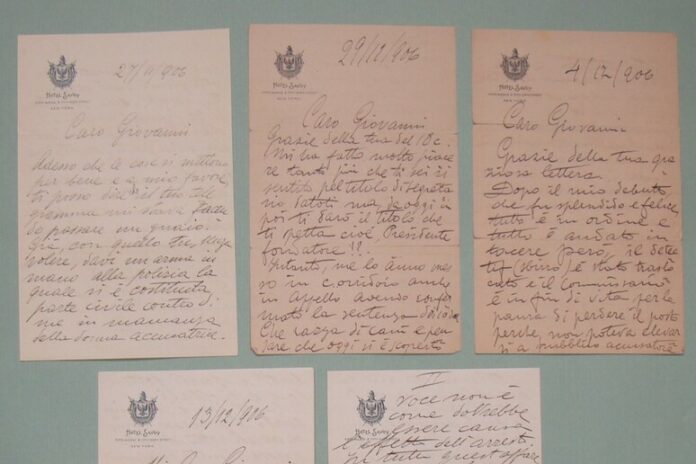 HOTEL SAVOY
NEW YORK
27/11/906
Caro Giovanni
Adesso che le cose si mettono
per bene e a mio favore,
ti posso dire il tuo tele
gramma mi stava facen
do passare un guaio.
Già, con quello tu, senza
volere, davi un'arma in
mano alla polizia la
quale si è costituita
parte civile contro di
me in mancanza
della donna accusatrice.
HOTEL SAVOY
NEW YORK
29/12/906
Caro Giovanni
Grazie della tua del 18 c.
Mi ha fatto molto piace
re tanto più che ti sei ri
sentito pel titolo di segreta
rio datoti ma, da oggi in
poi ti darò il titolo che
ti spetta cioè, Presidente
fondatore!!
Intanto, me lo ànno mes
so in corridoio anche
in appello avendo confer
mato la sentenza
Che razza di cani e pen
sare che oggi si è scoperto
HOTEL SAVOY
NEW YORK
4/12/906
Caro Giovanni.
Grazie della tua gra
ziosa lettera.
Dopo il mio debutto
che fu splendido e felice,
tutto è in ordine e
tutto è andato in
tacere però, il detec
tif (sbirro) è stato traslo
cato e il Commissario
è in fin di vita per la
paura di perdere il posto
perche, non poteva elevar
si a pubblico accusatore
HOTEL SAVOY
NEW YORK
13/12/906
Giovanni
HOTEL SAVOY
NEW YORK
II
voce non è
come dovrebbe
essere causa
l'effetto dell'arresto.
In tutto quest'affare